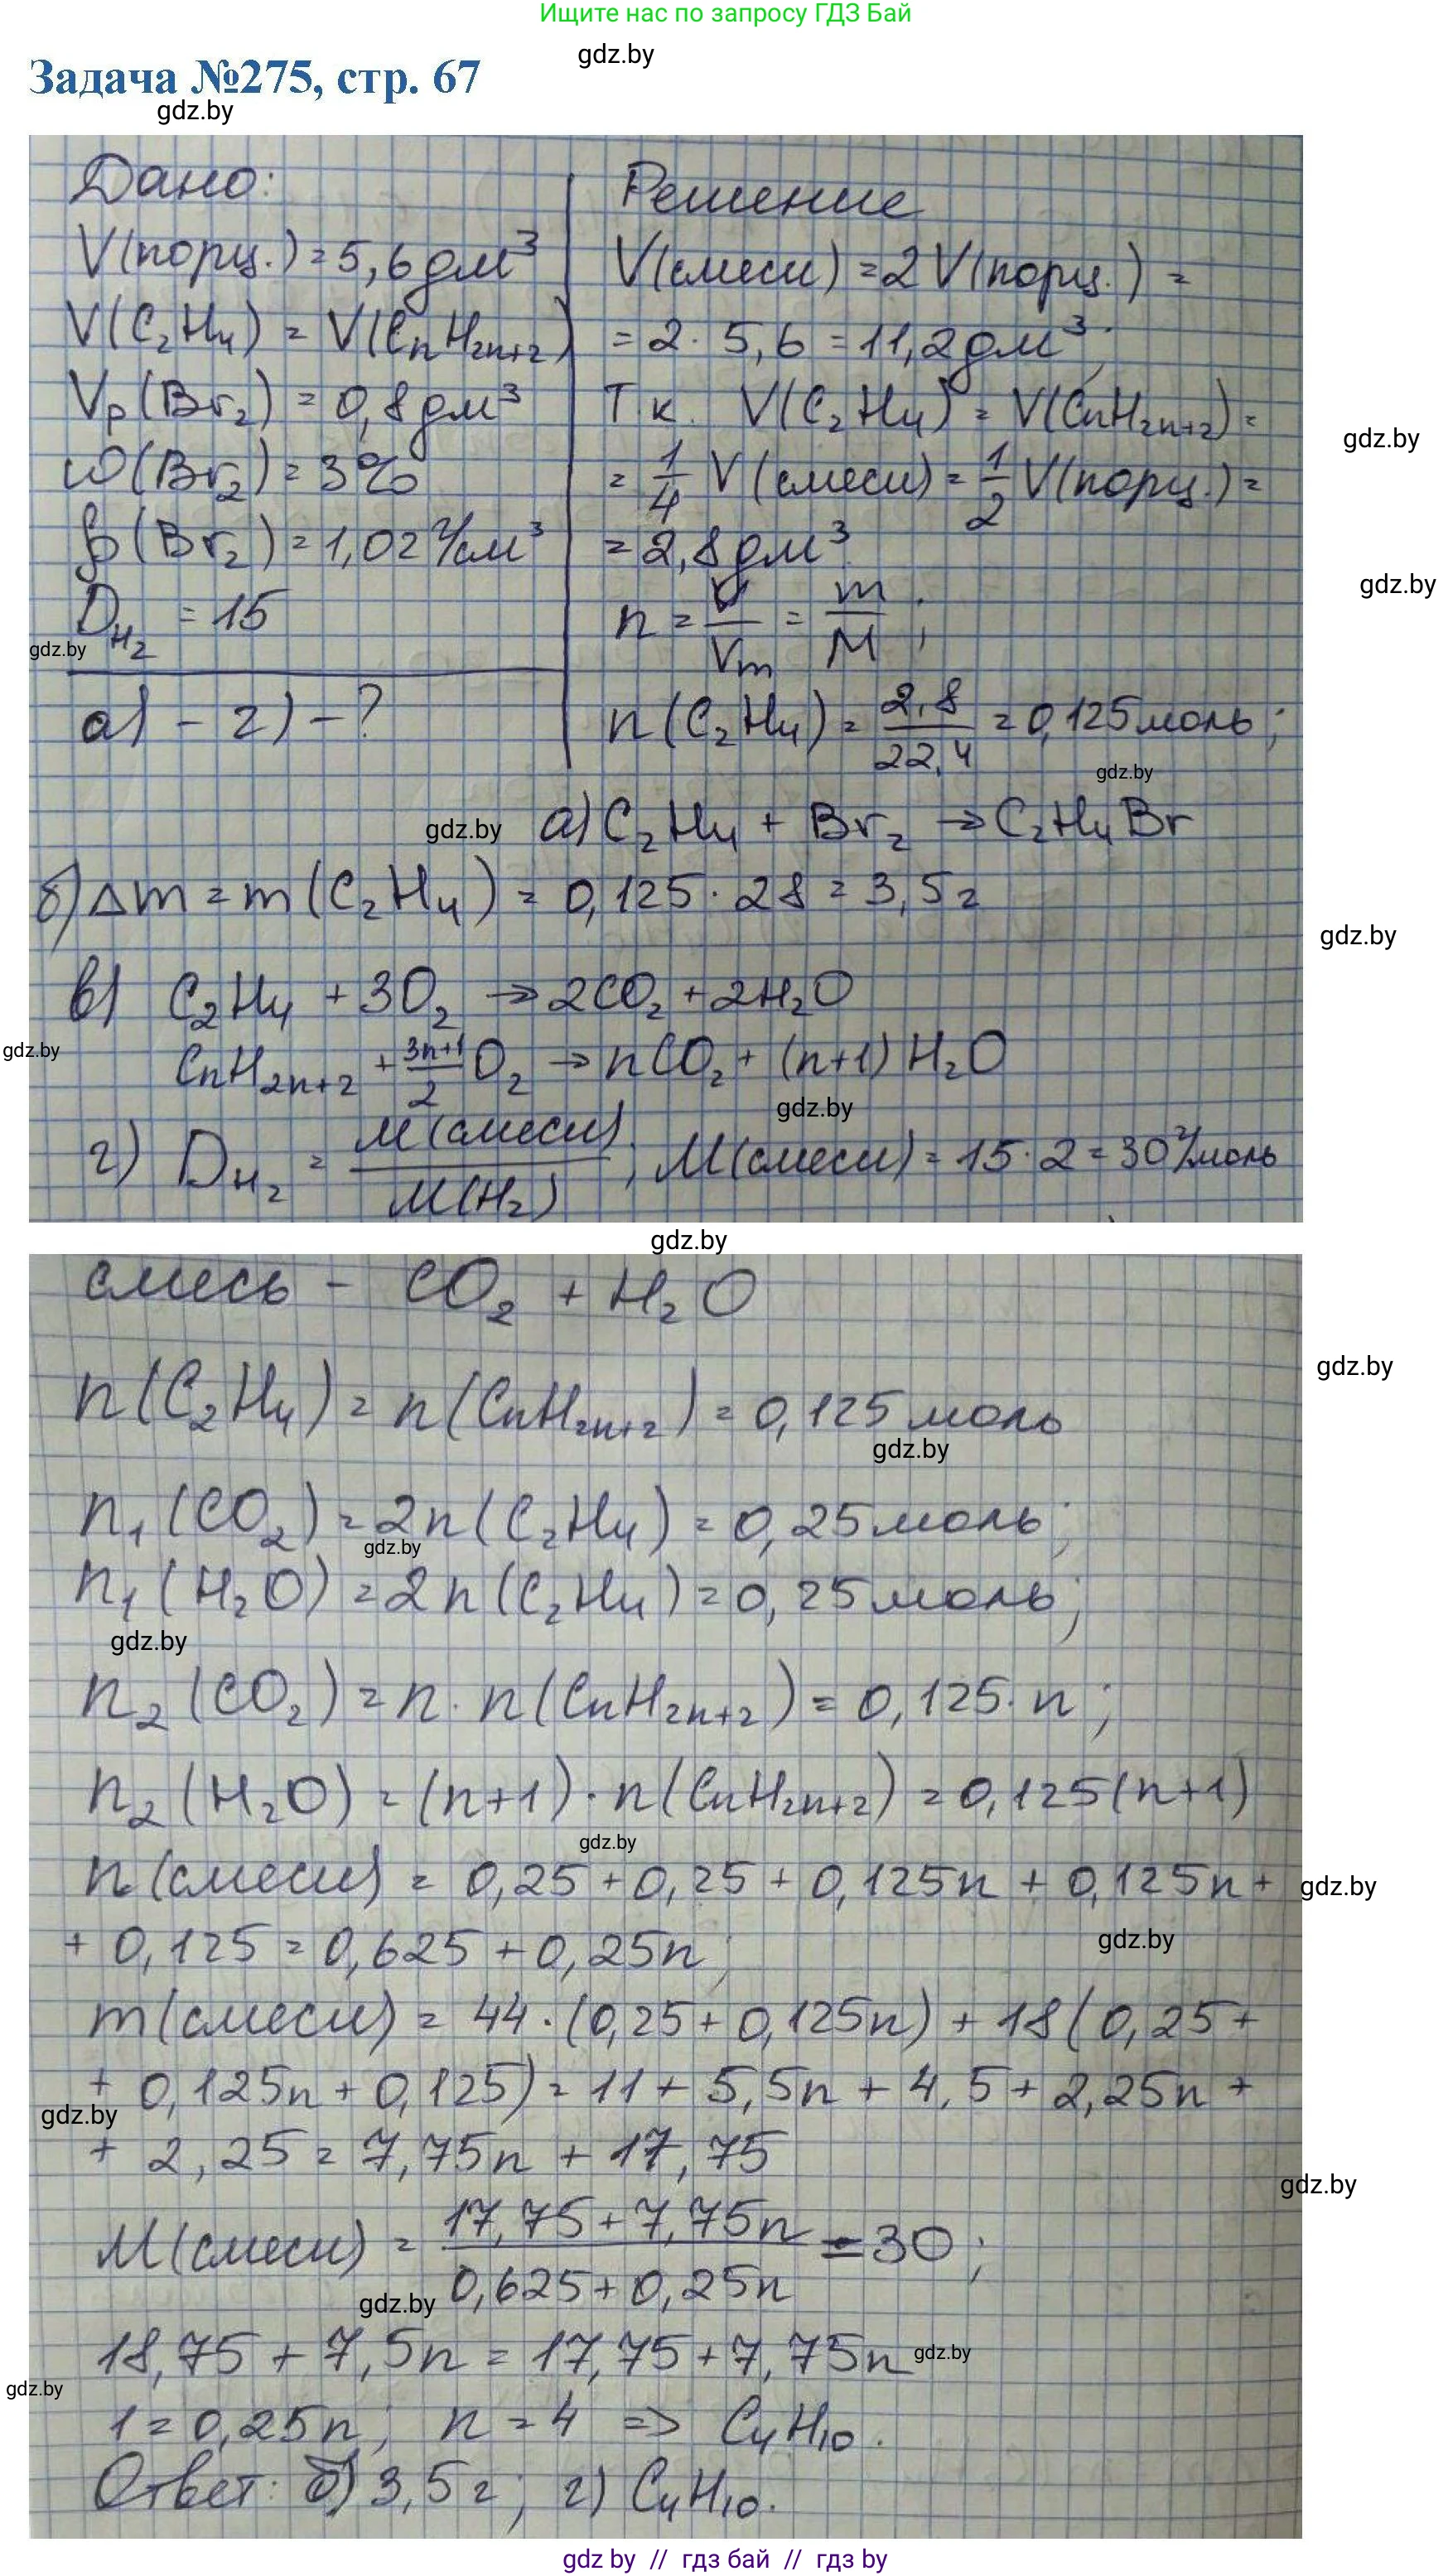 Ищите нас по запросу ГДЗ Бай
gdz.by
Задача №275, стр. 67
gdz.by
Дано:
V(порц.) = 5,6 дм³
V(C₂H₄) = V(CnH2n+2)
Vр(Br₂) = 0,8 дм³
ω(Br₂) = 3%
ρ(Br₂) = 1,02 г/см³
D_H₂ = 15
gdz.by
а) - г) - ?
Решение
V(смеси) = 2V(порц.) =
= 2 · 5,6 = 11,2 дм³;
Т.к. V(C₂H₄) = V(CnH2n+2) =
gdz.by
= 1/4 V(смеси) = 1/2 V(порц.) =
= 2,8 дм³
gdz.by
n = V/Vm = m/M ;
n(C₂H₄) = 2,8/22,4 = 0,125 моль;
gdz.by
gdz.by
а) C₂H₄ + Br₂ → C₂H₄Br
б) Δm = m(C₂H₄) = 0,125 · 28 = 3,5 г
gdz.by
в) C₂H₄ + 3O₂ → 2CO₂ + 2H₂O
gdz.by
CnH2n+2 + (3n+1)/2 O₂ → nCO₂ + (n+1)H₂O
gdz.by
г) D_H₂ = M(смеси)/M(H₂) ; M(смеси) = 15 · 2 = 30 г/моль
gdz.by
смесь - CO₂ + H₂O
gdz.by
n(C₂H₄) = n(CnH2n+2) = 0,125 моль
gdz.by
n₁(CO₂) = 2n(C₂H₄) = 0,25 моль;
gdz.by
n₁(H₂O) = 2n(C₂H₄) = 0,25 моль;
gdz.by
n₂(CO₂) = n · n(CnH2n+2) = 0,125 · n ;
n₂(H₂O) = (n+1) · n(CnH2n+2) = 0,125(n+1)
gdz.by
n(смеси) = 0,25 + 0,25 + 0,125n + 0,125n +
gdz.by
+ 0,125 = 0,625 + 0,25n;
gdz.by
m(смеси) = 44 · (0,25 + 0,125n) + 18(0,25 +
+ 0,125n + 0,125) = 11 + 5,5n + 4,5 + 2,25n +
gdz.by
+ 2,25 = 7,75n + 17,75
gdz.by
M(смеси) = (17,75 + 7,75n)/(0,625 + 0,25n) = 30 ;
gdz.by
18,75 + 7,5n = 17,75 + 7,75n
gdz.by
gdz.by
1 = 0,25n; n = 4 => C₄H₁₀.
Ответ: б) 3,5 г; г) C₄H₁₀.
gdz by // гдз бай // гдз by